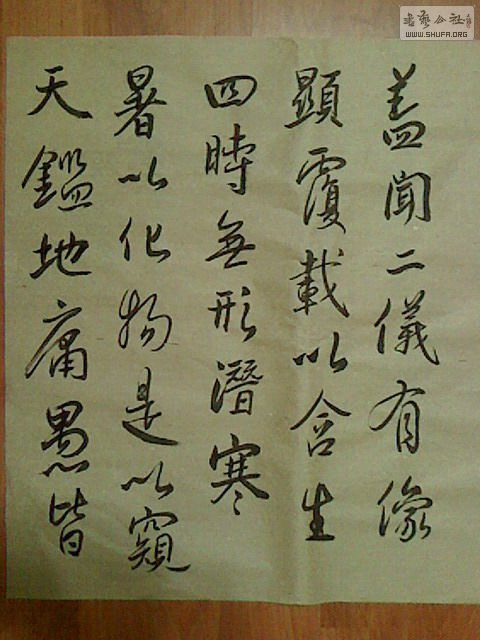 蓋聞二儀有像
顯覆載以含生
四時無形潛寒
暑以化物是以窺
天鑑地庸愚皆
書藝公社
WWW.SHUFA.ORG